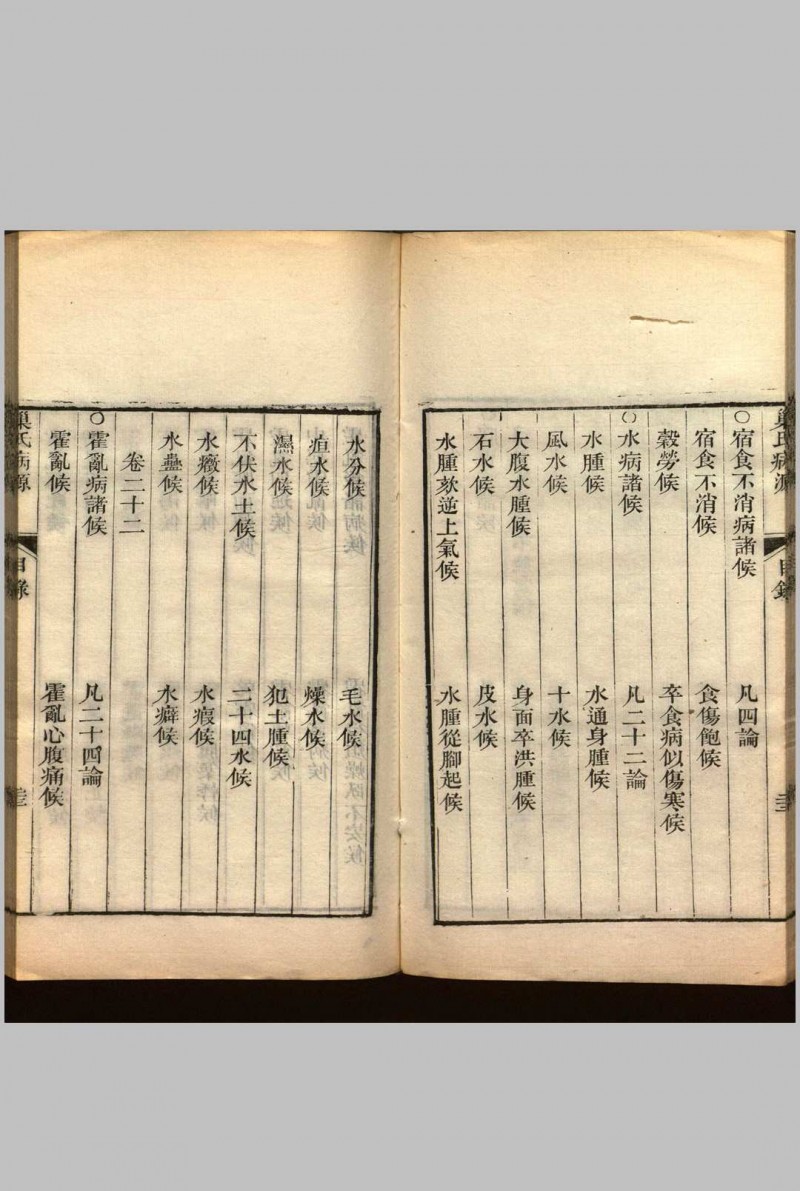 巢氏病源
目錄
〇宿食不消病諸候 凡四論
宿食不消候 食傷飽候
穀勞候 卒食病似傷寒候
〇水病諸候 凡二十二論
水腫候 水通身腫候
風水候 十水候
大腹水腫候 身面卒洪腫候
石水候 皮水候
水腫欬逆上氣候 水腫從腳起候
水分候 毛水候
疸水候 燥水候
濕水候 犯土腫候
不伏水土候 二十四水候
水癥候 水瘕候
水蠱候 水癖候
卷二十二
〇霍亂病諸候 凡二十四論
霍亂候 霍亂心腹痛候
巢氏病源
目錄